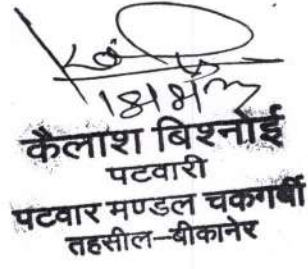 कैलाश बिश्नोई
पटवारी
पटवार मण्डल चकगर्बी
तहसील–बीकानेर